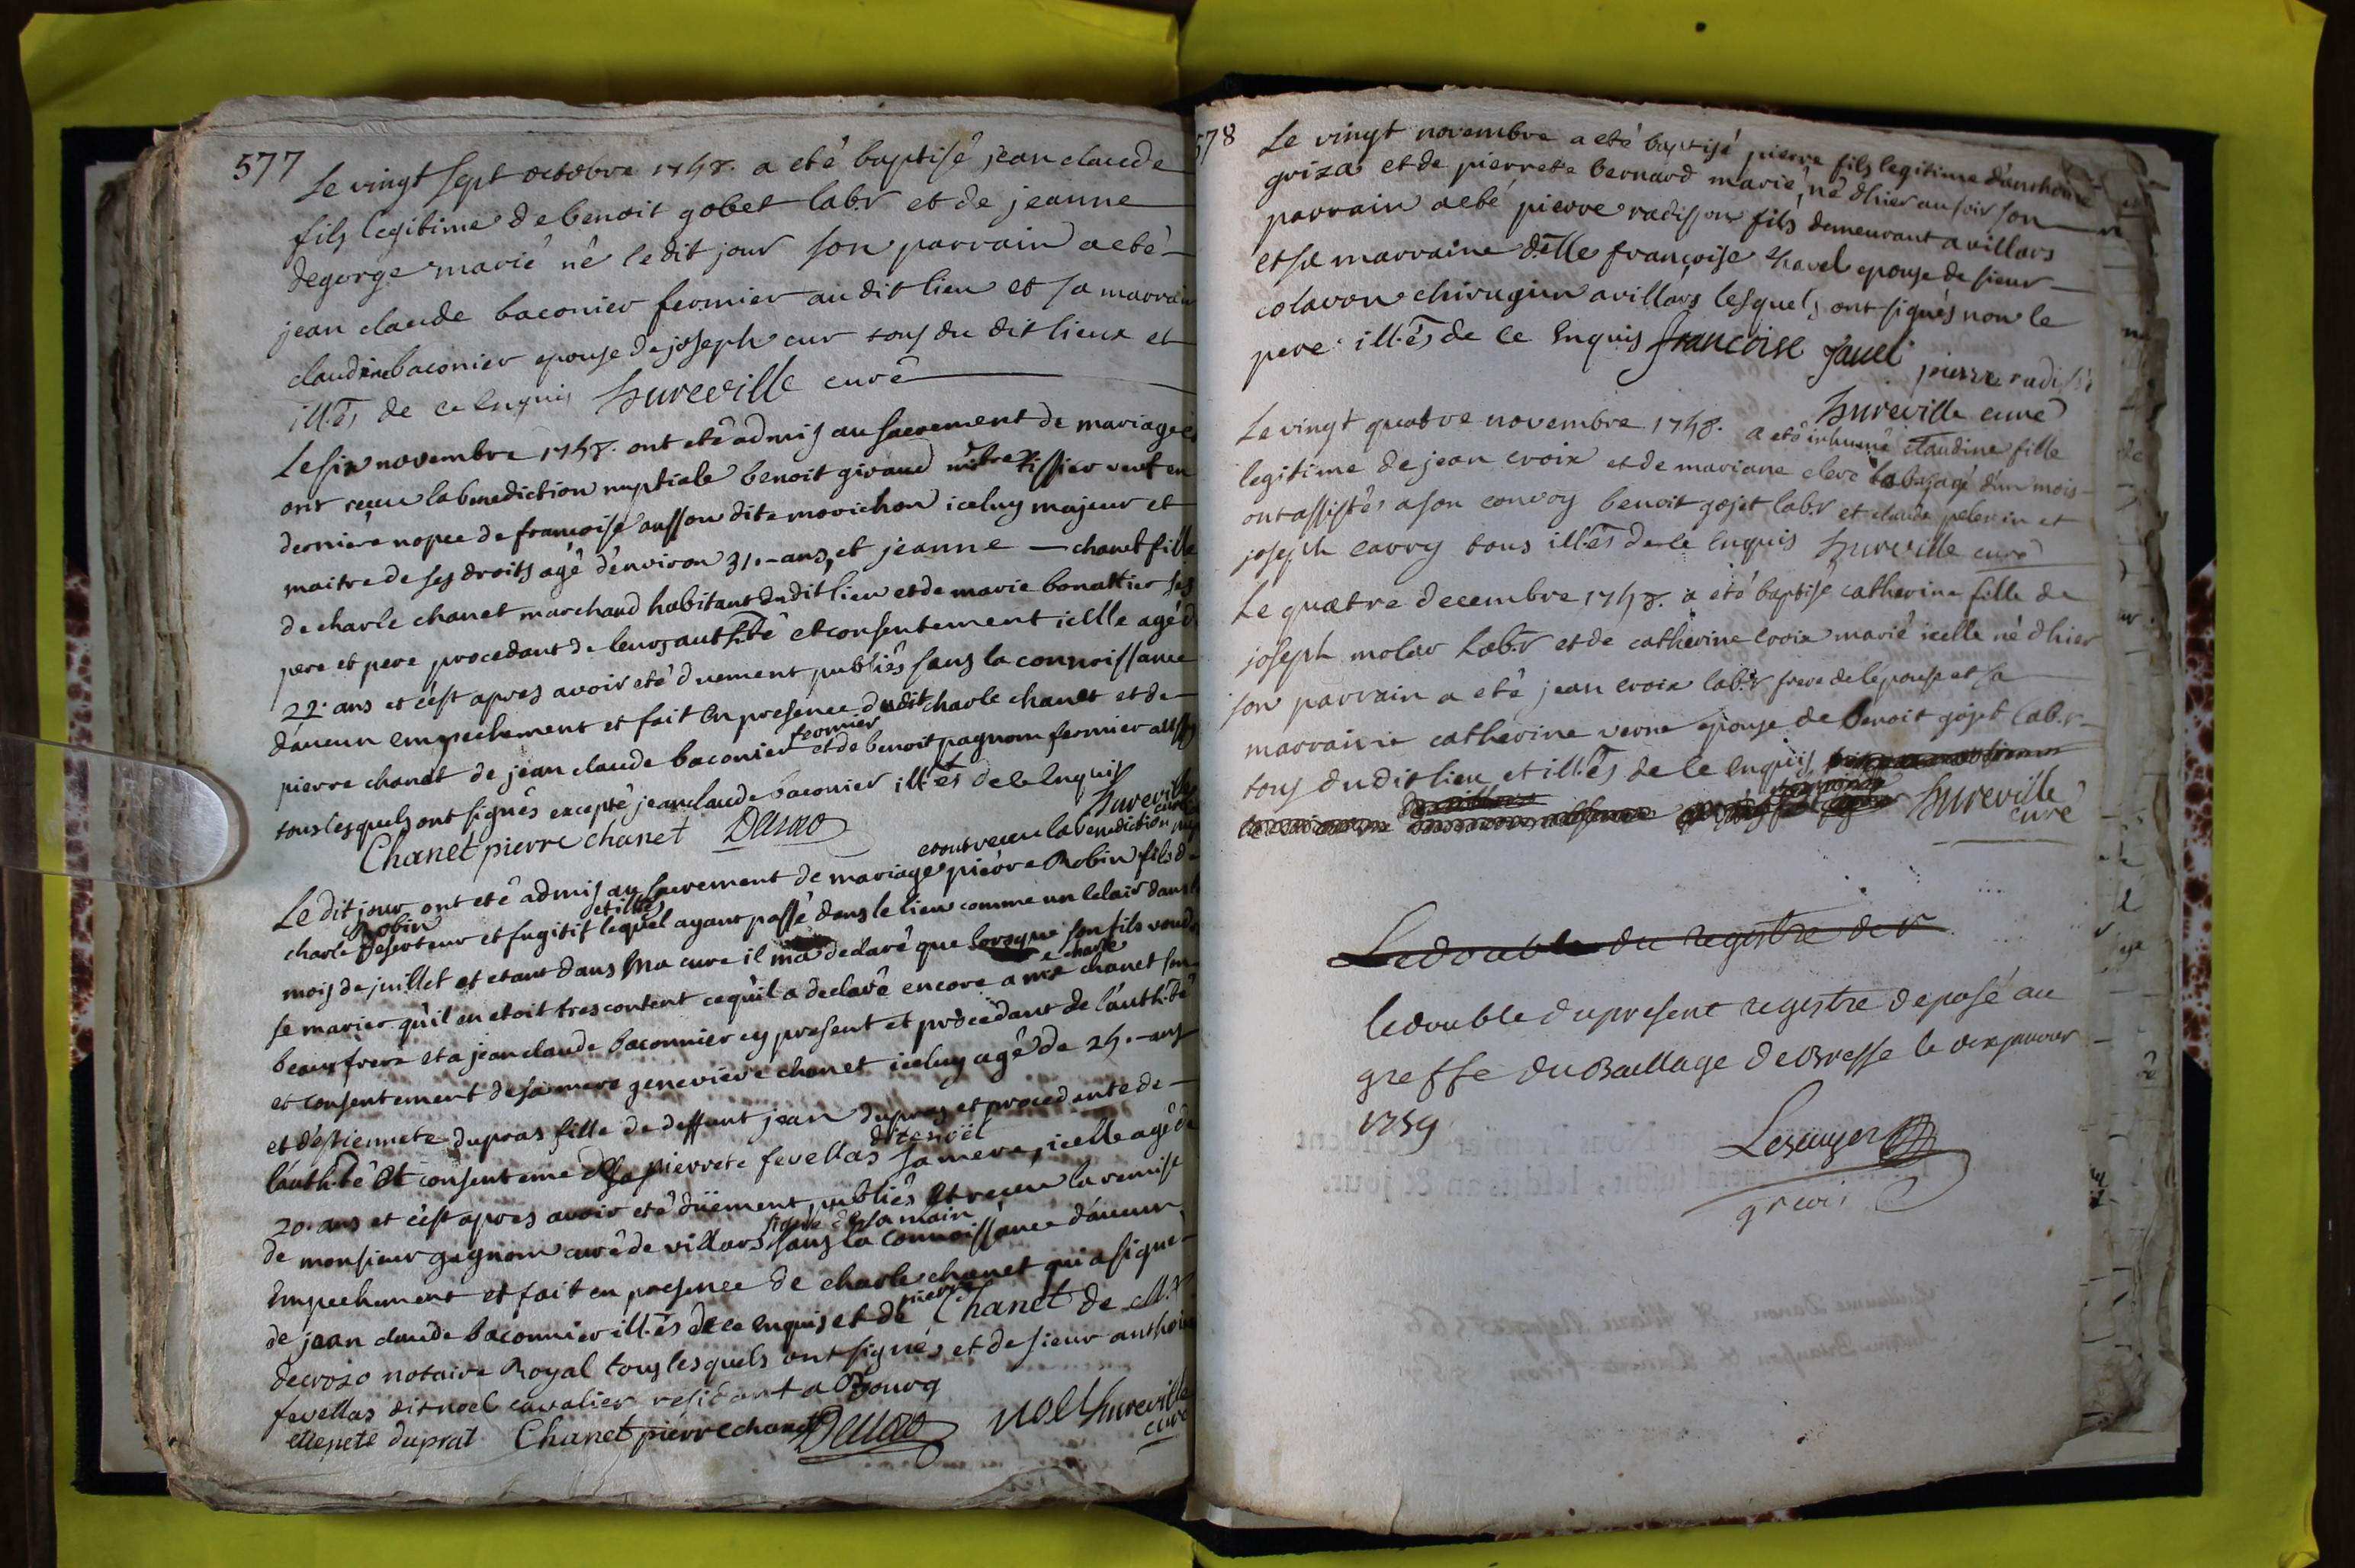 577
Le vingt sept octobre 1758. a eté baptisé jean claude
fils legitime de benoit gobet lab.r et de jeanne
degorge marié né le dit jour son parrain a eté
jean claude baconier fermier au dit lieu et sa marrain
claudine baconier epouse de joseph cur tous du dit lieux et
ill.és de ce enquis hureville curé
Le six novembre 1758. ont eté admis au sacrement de mariage et
ont reçeu la benediction nuptiale benoit giraud tissier veuf en
derniere nopce de francoise dite morichon iceluy majeur et
maitre de ses droits agé d'environ 31. ans, et jeanne chanet fille
de charle chanet marchand habitant du dit lieu et de marie bonattier ses
pere et pere procedant de leurs auth.té et consentement icelle agé d
22. ans et c'est apres avoir eté duement publiés sans la connoissance
d'aucun empechement et fait en presence dudit charle chanet et de
pierre chanet de jean claude baconier fermier et de benoit pagnom fermier aussy
tous lesquels ont signés excepté jean claude baconier ill.és de ce enquis
hureville curé
Chanet pierre chanet
et ont reçeu la benediction nup
Le dit jour ont eté admis au sacrement de mariage pierre Robin fils de
charle Robin deserteur et fugitif et illés lequel ayant passé dans le lieu comme un lelair dans le
mois de juillet et etant dans ma cure il m'a declaré que lorsque son fils voud
se marier qu'il en etoit tres content ce qu'il a declaré encore a charle chanet son
beau frere et a jean claude baconnier cy present et procedant de l'auth.té
et consentement de sa mere genevieve chanet iceluy agé de 25. ans
et d'estiennete dupras fille de deffunt jean dupras et procedante de
l'auth.té et consenteme de sa pierrete fevellas dite noël sa mere, icelle agé de
20. ans et c'est apres avoir eté düement publiés et reçeu la remise
de monsieur gagnom curé de villars signé de sa main sans la connoissance d'aucun
empechement et fait en presence de charle chanet qui a signe
de jean claude baconnier ill.és de ce enquis et de pierre Chanet de M.r
decrozo notaire Royal tous lesquels ont signés et de sieur anthoine
fevellas dit noel cavalier residant a Bourg
etienete duprat Chanet pierre chanet noel hureville
curé
578
Le vingt novembre a eté baptisé pierre fils legitime d'anthoine
griza et de pierrete bernard marié, né d'hier au soir son
parrain a eté pierre radisson fils demeurant a villars
et sa marraine d.elle françoise chavel epouse de sieur
colavon chirugien a villars lesquels ont signés non le
pere ill.és de ce enquis francoise Javel pierre radisso
hureville curé
Le vingt quatre novembre 1758. a eté inhumé claudine fille
legitime de jean croix et de mariane clerc agé d'un mois
ont assistés a son convoy benoit gojet lab.r et claude pelerin et
joseph carry tous ill.és de ce enquis hureville curé
Le quatre decembre 1758. a eté baptisé catherine fille de
joseph molar Lab.r et de catherine croix marié icelle né d'hier
son parrain a eté jean croix lab.r frere de l'epouse et sa
marraine catherine verne epouse de benoit gojet lab.r
tous du dit lieu et ill.és de ce enquis
hureville
curé
Le double du registre de
le double du present registre deposé au
greffe du Baillage de Bresse le dix janvier
1759